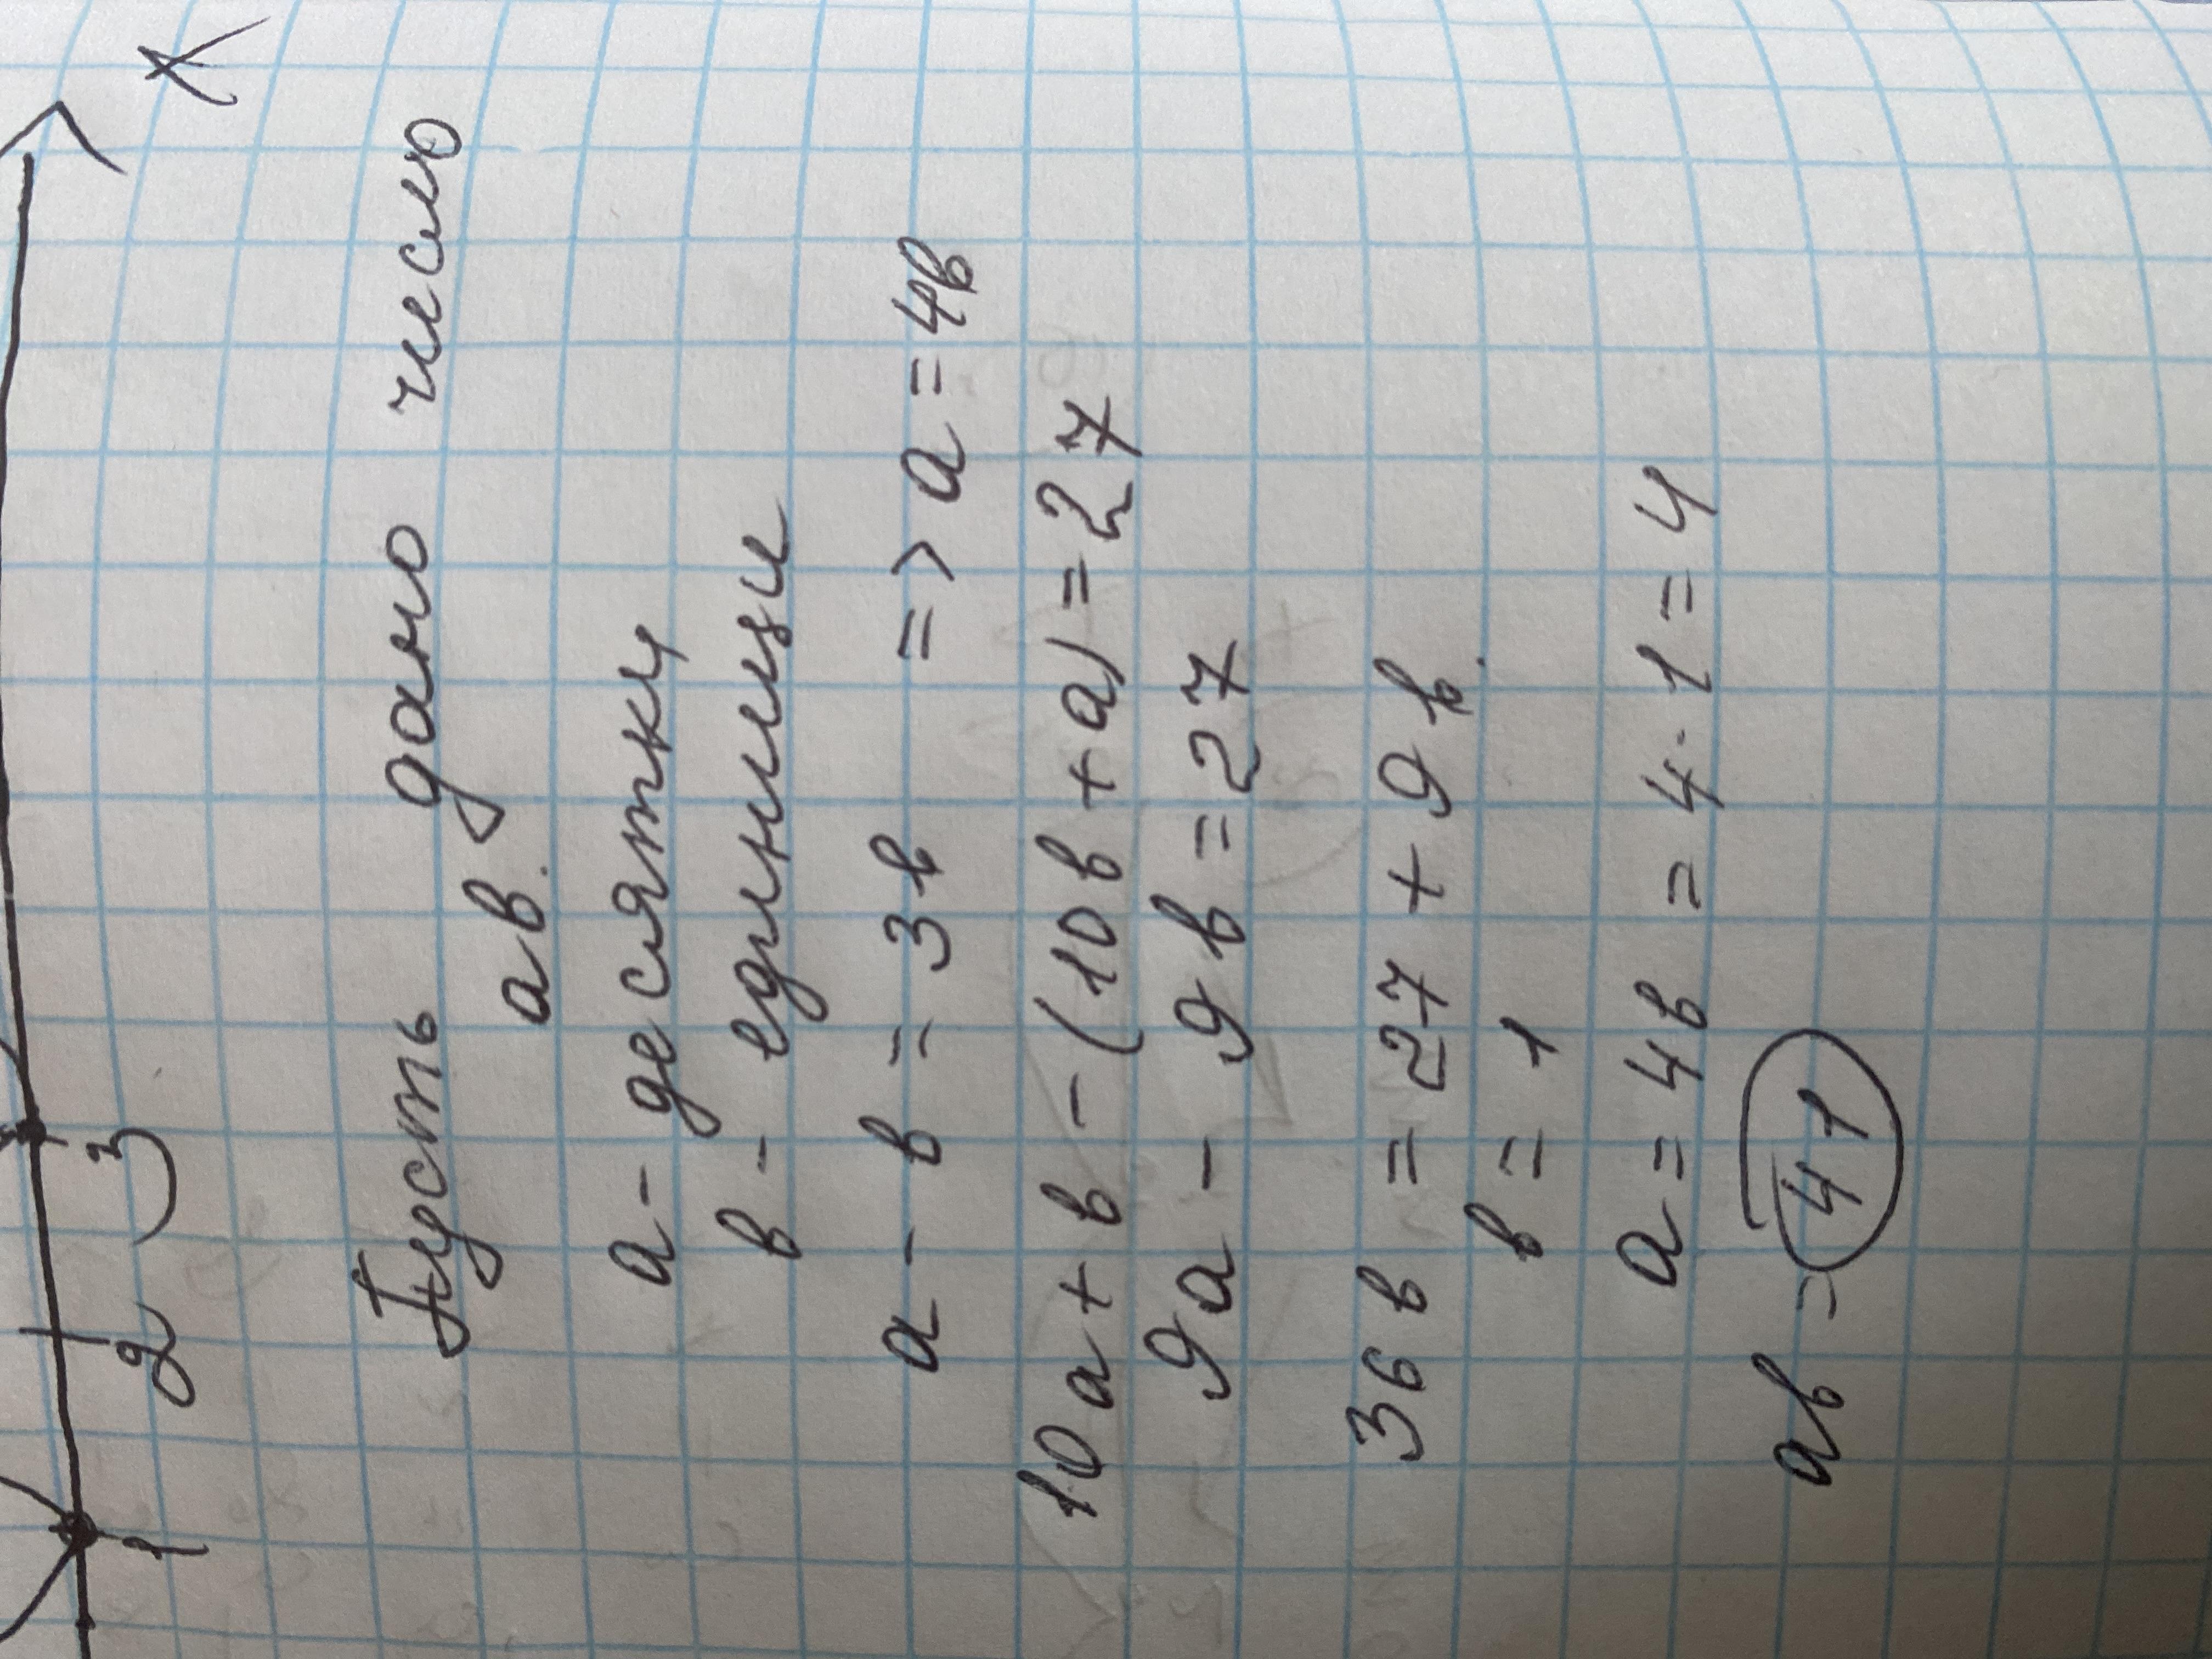 1 2 3 х
Пусть дано число
ав.
а - десятки
в - единицы
а - в = 3в => а = 4в
10а + в - (10в + а) = 27
9а - 9в = 27
36в = 27 + 9в.
в = 1
а = 4в = 4·1 = 4
ав = 41